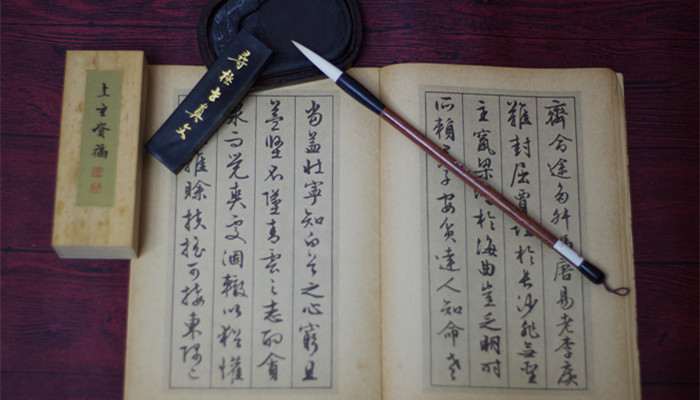 齊命途多舛馮唐易老李廣
難封屈賈誼於長沙非無聖
主竄梁於海曲豈乏明時
所賴子安貧達人知命老
當益壯寧知白首之心窮且
益堅不墜青雲之志酌貪
泉而覺爽處涸轍以猶懽
雖賒扶搖可接東隅已
尋極真文
上福